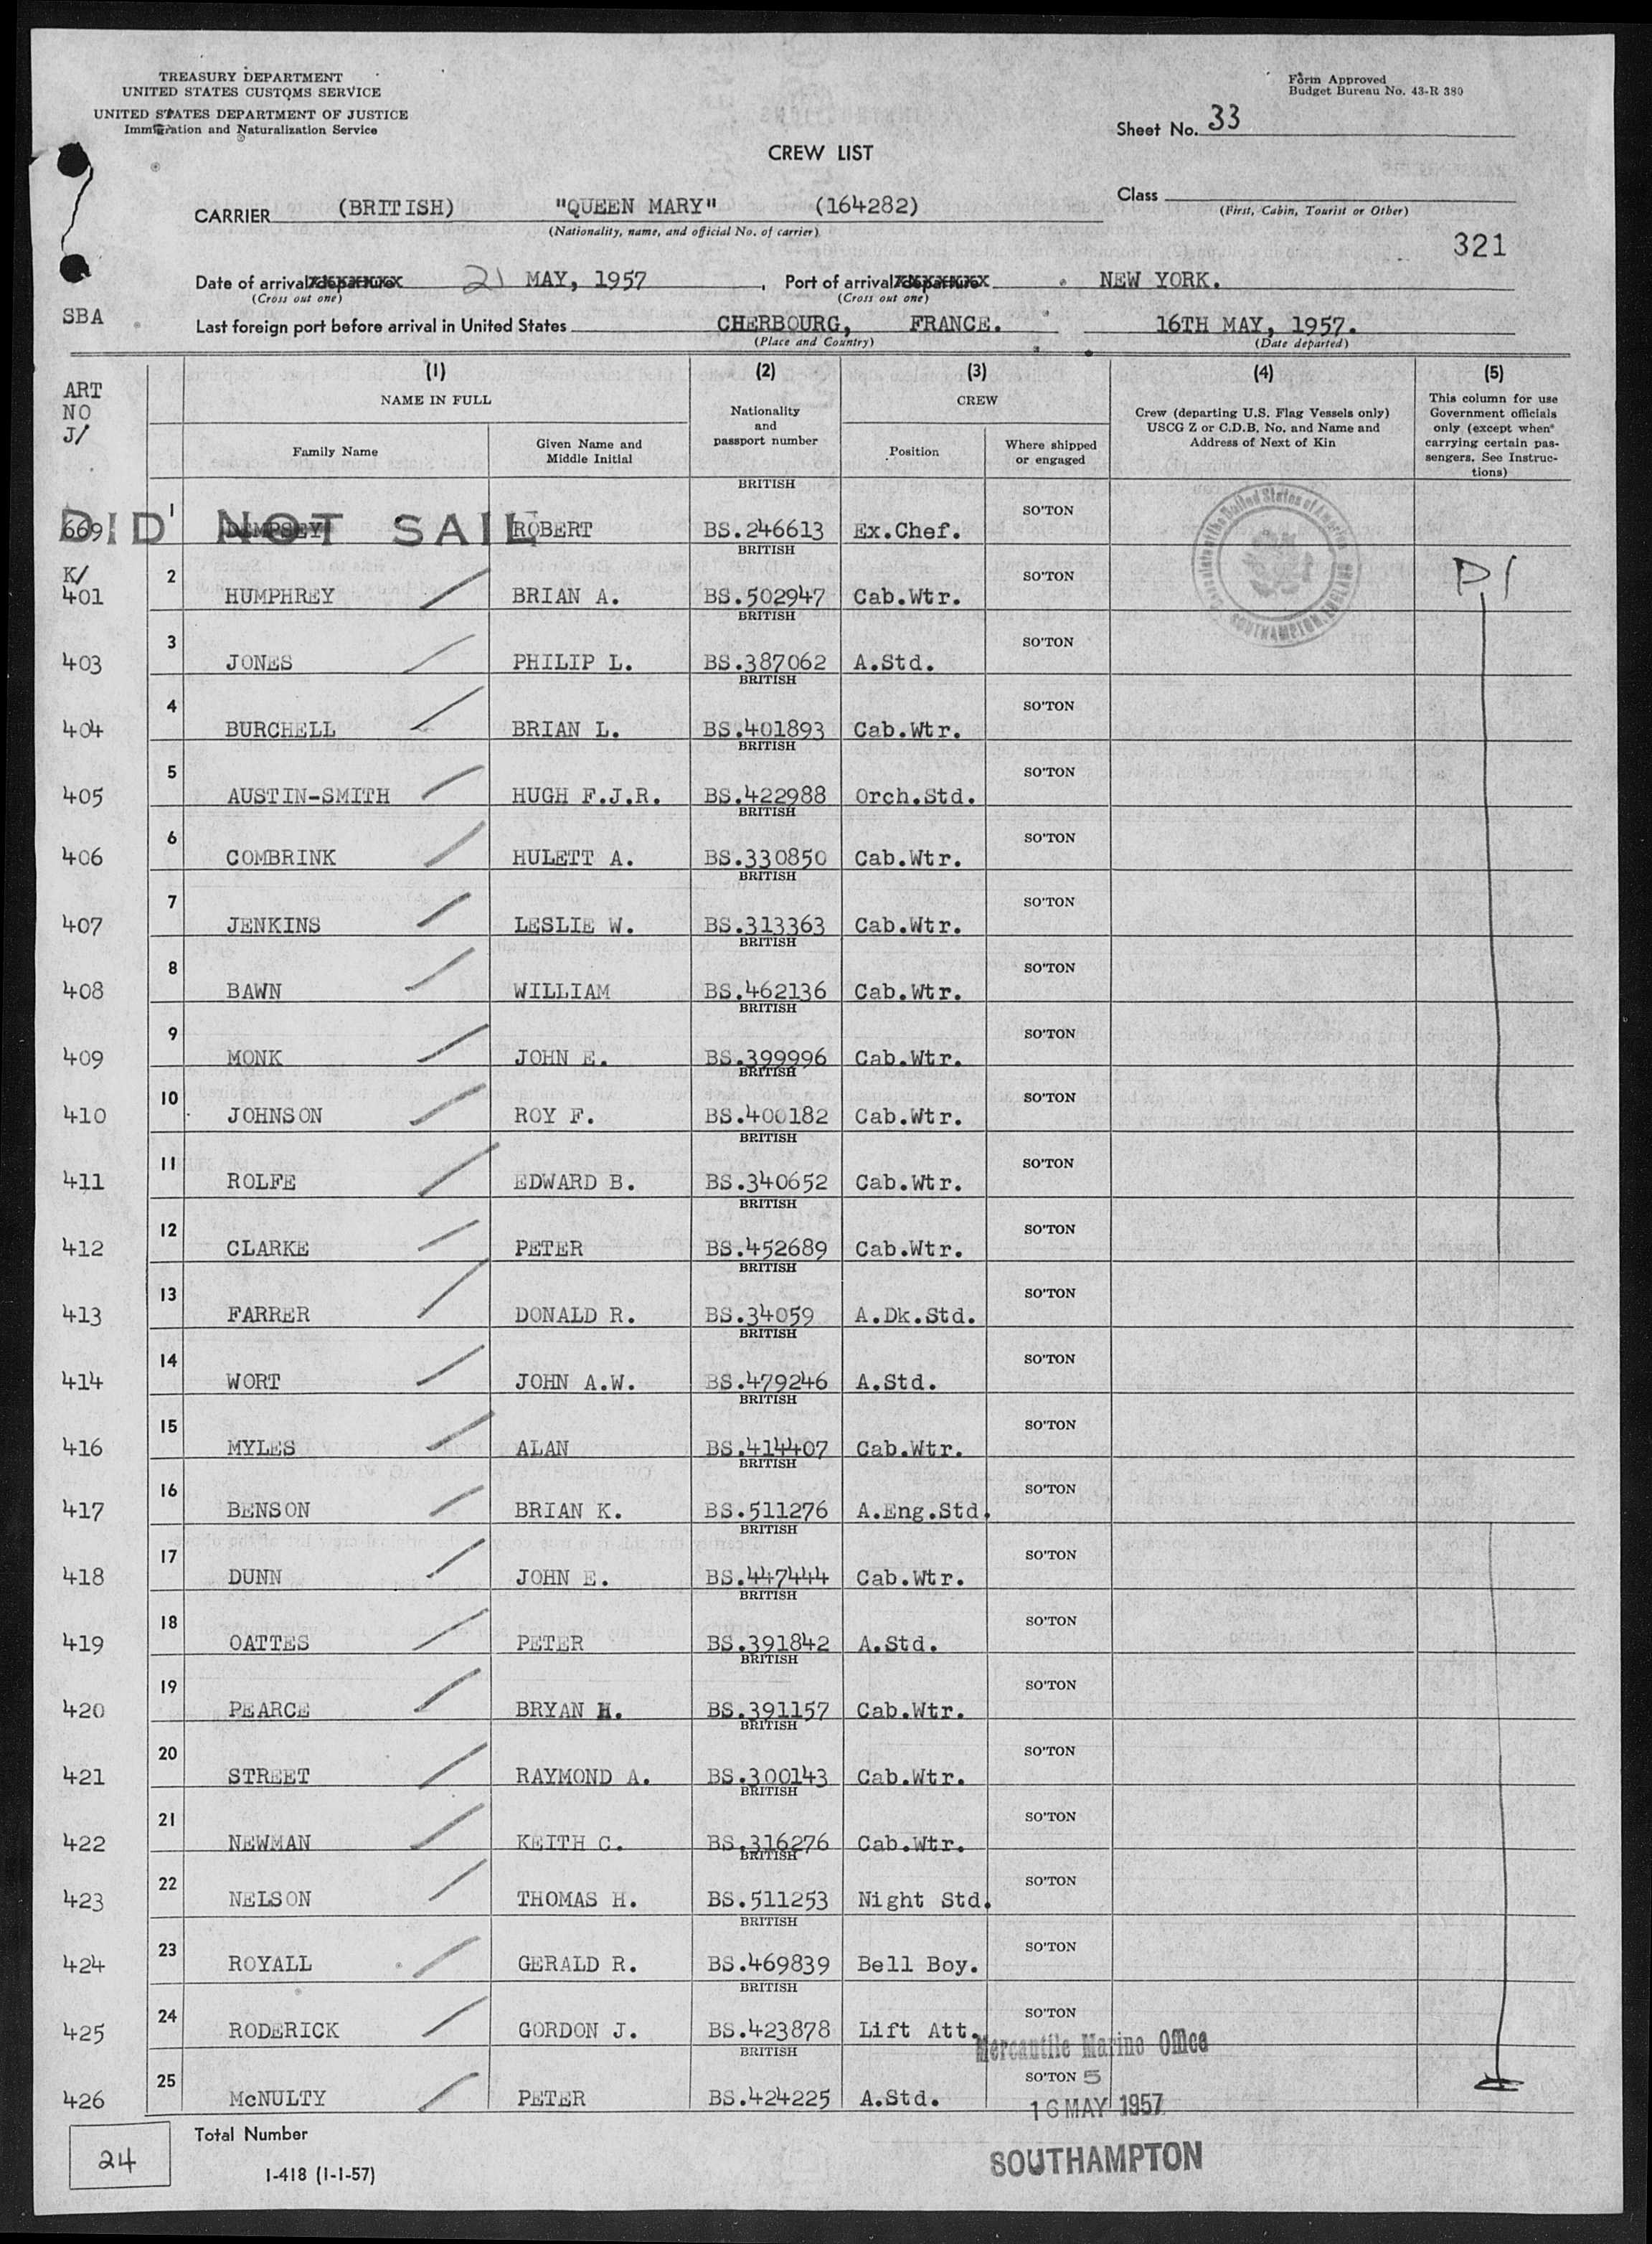 TREASURY DEPARTMENT
UNITED STATES CUSTOMS SERVICE
UNITED STATES DEPARTMENT OF JUSTICE
Immigration and Naturalization Service
Form Approved
Budget Bureau No. 43-R 380
Sheet No. 33
CREW LIST
CARRIER (BRITISH) "QUEEN MARY" (164282)
(Nationality, name, and official No. of carrier)
Class
(First, Cabin, Tourist or Other)
321
Date of arrival/departure 21 MAY, 1957, Port of arrival/departure NEW YORK.
(Cross out one) (Cross out one)
SBA
Last foreign port before arrival in United States CHERBOURG, FRANCE. 16TH MAY, 1957.
(Place and Country) (Date departed)
ART
NO
J/
(1) (2) (3) (4) (5)
NAME IN FULL
Family Name
Given Name and
Middle Initial
Nationality
and
passport number
CREW
Position
Where shipped
or engaged
Crew (departing U.S. Flag Vessels only)
USCG Z or C.D.B. No. and Name and
Address of Next of Kin
This column for use
Government officials
only (except when
carrying certain pas-
sengers. See Instruc-
tions)
DID NOT SAIL
669 1 DEMPSEY ROBERT BRITISH BS.246613 Ex.Chef. SO'TON
K/
401 2 HUMPHREY BRIAN A. BRITISH BS.502947 Cab.Wtr. SO'TON
403 3 JONES PHILIP L. BRITISH BS.387062 A.Std. SO'TON
404 4 BURCHELL BRIAN L. BRITISH BS.401893 Cab.Wtr. SO'TON
405 5 AUSTIN-SMITH HUGH F.J.R. BRITISH BS.422988 Orch.Std. SO'TON
406 6 COMBRINK HULETT A. BRITISH BS.330850 Cab.Wtr. SO'TON
407 7 JENKINS LESLIE W. BRITISH BS.313363 Cab.Wtr. SO'TON
408 8 BAWN WILLIAM BRITISH BS.462136 Cab.Wtr. SO'TON
409 9 MONK JOHN E. BRITISH BS.399996 Cab.Wtr. SO'TON
410 10 JOHNSON ROY F. BRITISH BS.400182 Cab.Wtr. SO'TON
411 11 ROLFE EDWARD B. BRITISH BS.340652 Cab.Wtr. SO'TON
412 12 CLARKE PETER BRITISH BS.452689 Cab.Wtr. SO'TON
413 13 FARRER DONALD R. BRITISH BS.34059 A.Dk.Std. SO'TON
414 14 WORT JOHN A.W. BRITISH BS.479246 A.Std. SO'TON
416 15 MYLES ALAN BRITISH BS.414407 Cab.Wtr. SO'TON
417 16 BENSON BRIAN K. BRITISH BS.511276 A.Eng.Std. SO'TON
418 17 DUNN JOHN E. BRITISH BS.447444 Cab.Wtr. SO'TON
419 18 OATTES PETER BRITISH BS.391842 A.Std. SO'TON
420 19 PEARCE BRYAN H. BRITISH BS.391157 Cab.Wtr. SO'TON
421 20 STREET RAYMOND A. BRITISH BS.300143 Cab.Wtr. SO'TON
422 21 NEWMAN KEITH C. BRITISH BS.316276 Cab.Wtr. SO'TON
423 22 NELSON THOMAS H. BRITISH BS.511253 Night Std. SO'TON
424 23 ROYALL GERALD R. BRITISH BS.469839 Bell Boy. SO'TON
425 24 RODERICK GORDON J. BRITISH BS.423878 Lift Att. SO'TON
Mercantile Marine Office
426 25 McNULTY PETER BRITISH BS.424225 A.Std. SO'TON 5
16 MAY 1957
SOUTHAMPTON
24
Total Number
I-418 (1-1-57)